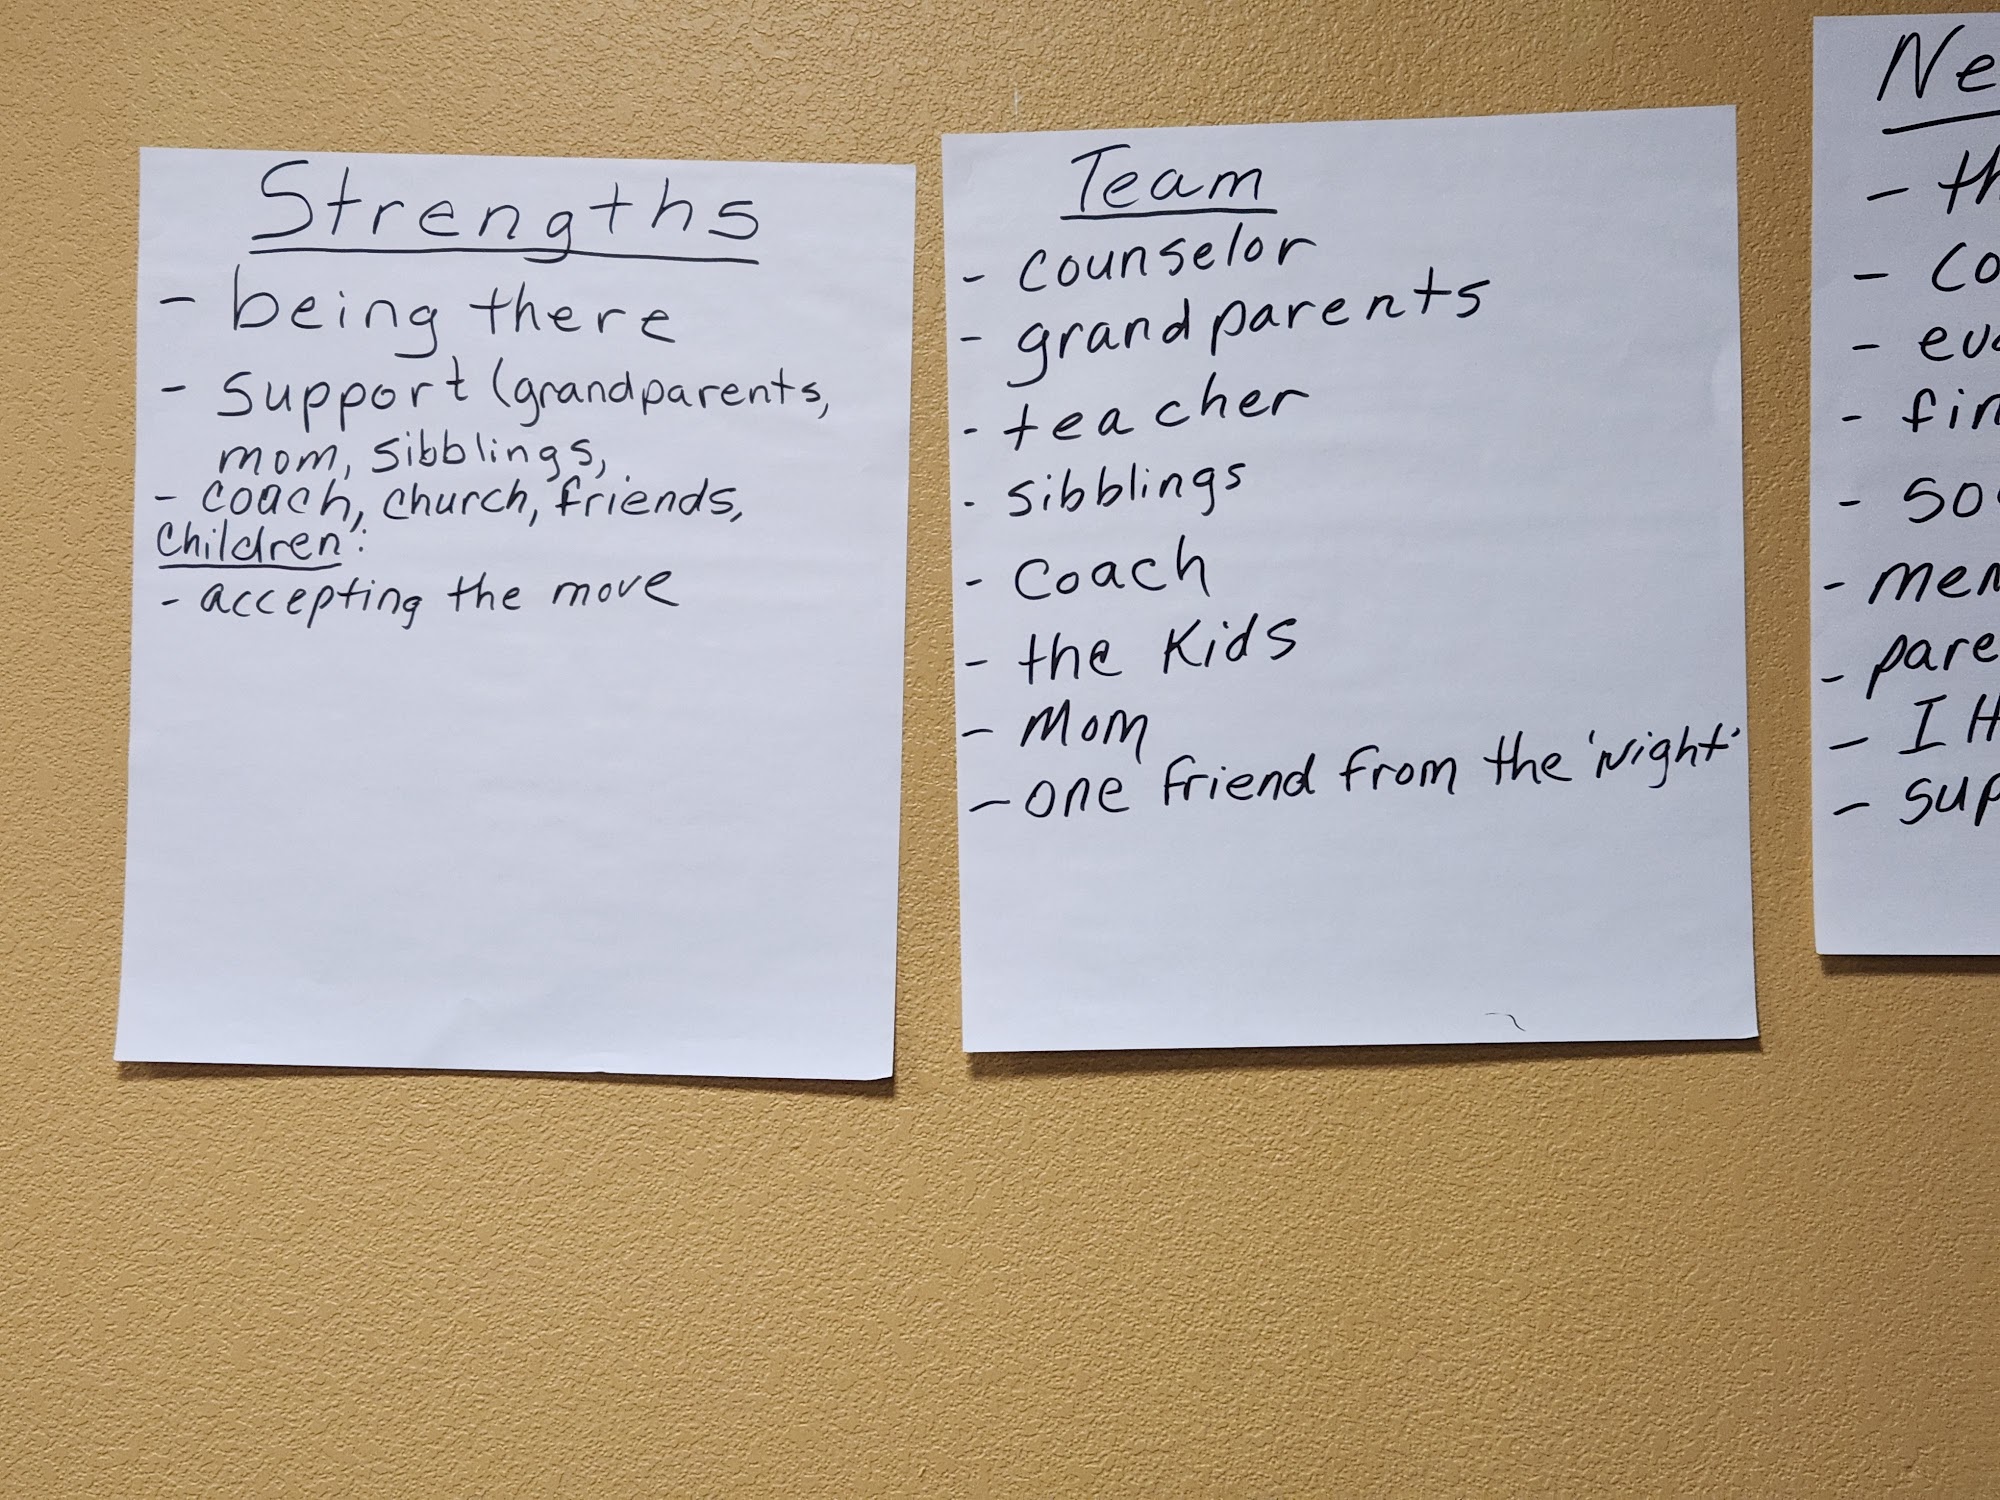 Strengths
- being there
- Support (grandparents,
mom, sibblings,
- coach, church, friends,
Children:
- accepting the move
Team
- counselor
- grandparents
- teacher
- sibblings
- coach
- the Kids
- Mom
- one friend from the 'Night'